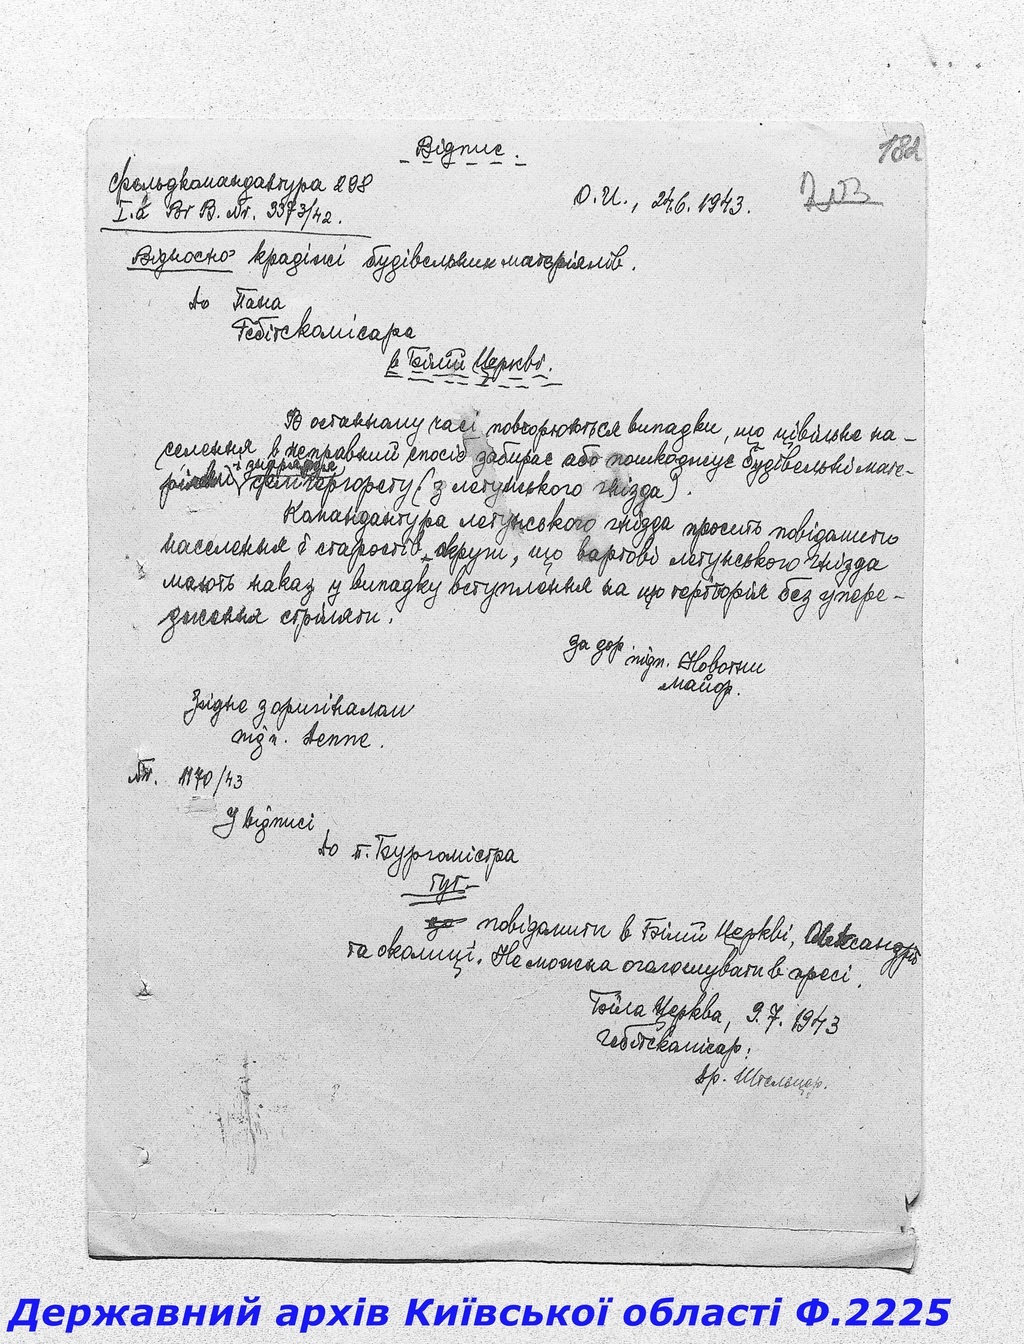 Відпис.
182
203
Фельдкомандантура 298
О.U., 24.6.1943.
I.a Br B. Nr. 3373/42.
Відносно: крадіжі будівельник матеріялів.
до Пана
Гебітскомісара
в Білій Церкві.
В останньому часі повторюються випадки, що цівільне на-
селення в неправний спосіб забирає або пошкоджує будівельні мате-
(з летунського гнізда).
Командантура летунського гнізда просить повідомити
населення й старостів округи, що вартові летунського гнізда
мають наказ у випадку вступлення на цю територія без упере-
дження стріляти.
за дор. підп. Новотни
майор.
Згідне з оригіналом
підп. Деппе.
Nr. 1170/43
У відписі
до п. Бургомістра
тут.
повідомити в Білій Церкві, Олександрії
та околиці. Не можна оголошувати в пресі.
Біла Церква, 9.7.1943
Гебітскомісар:
др. Штельцер.
Державний архів Київської області Ф.2225